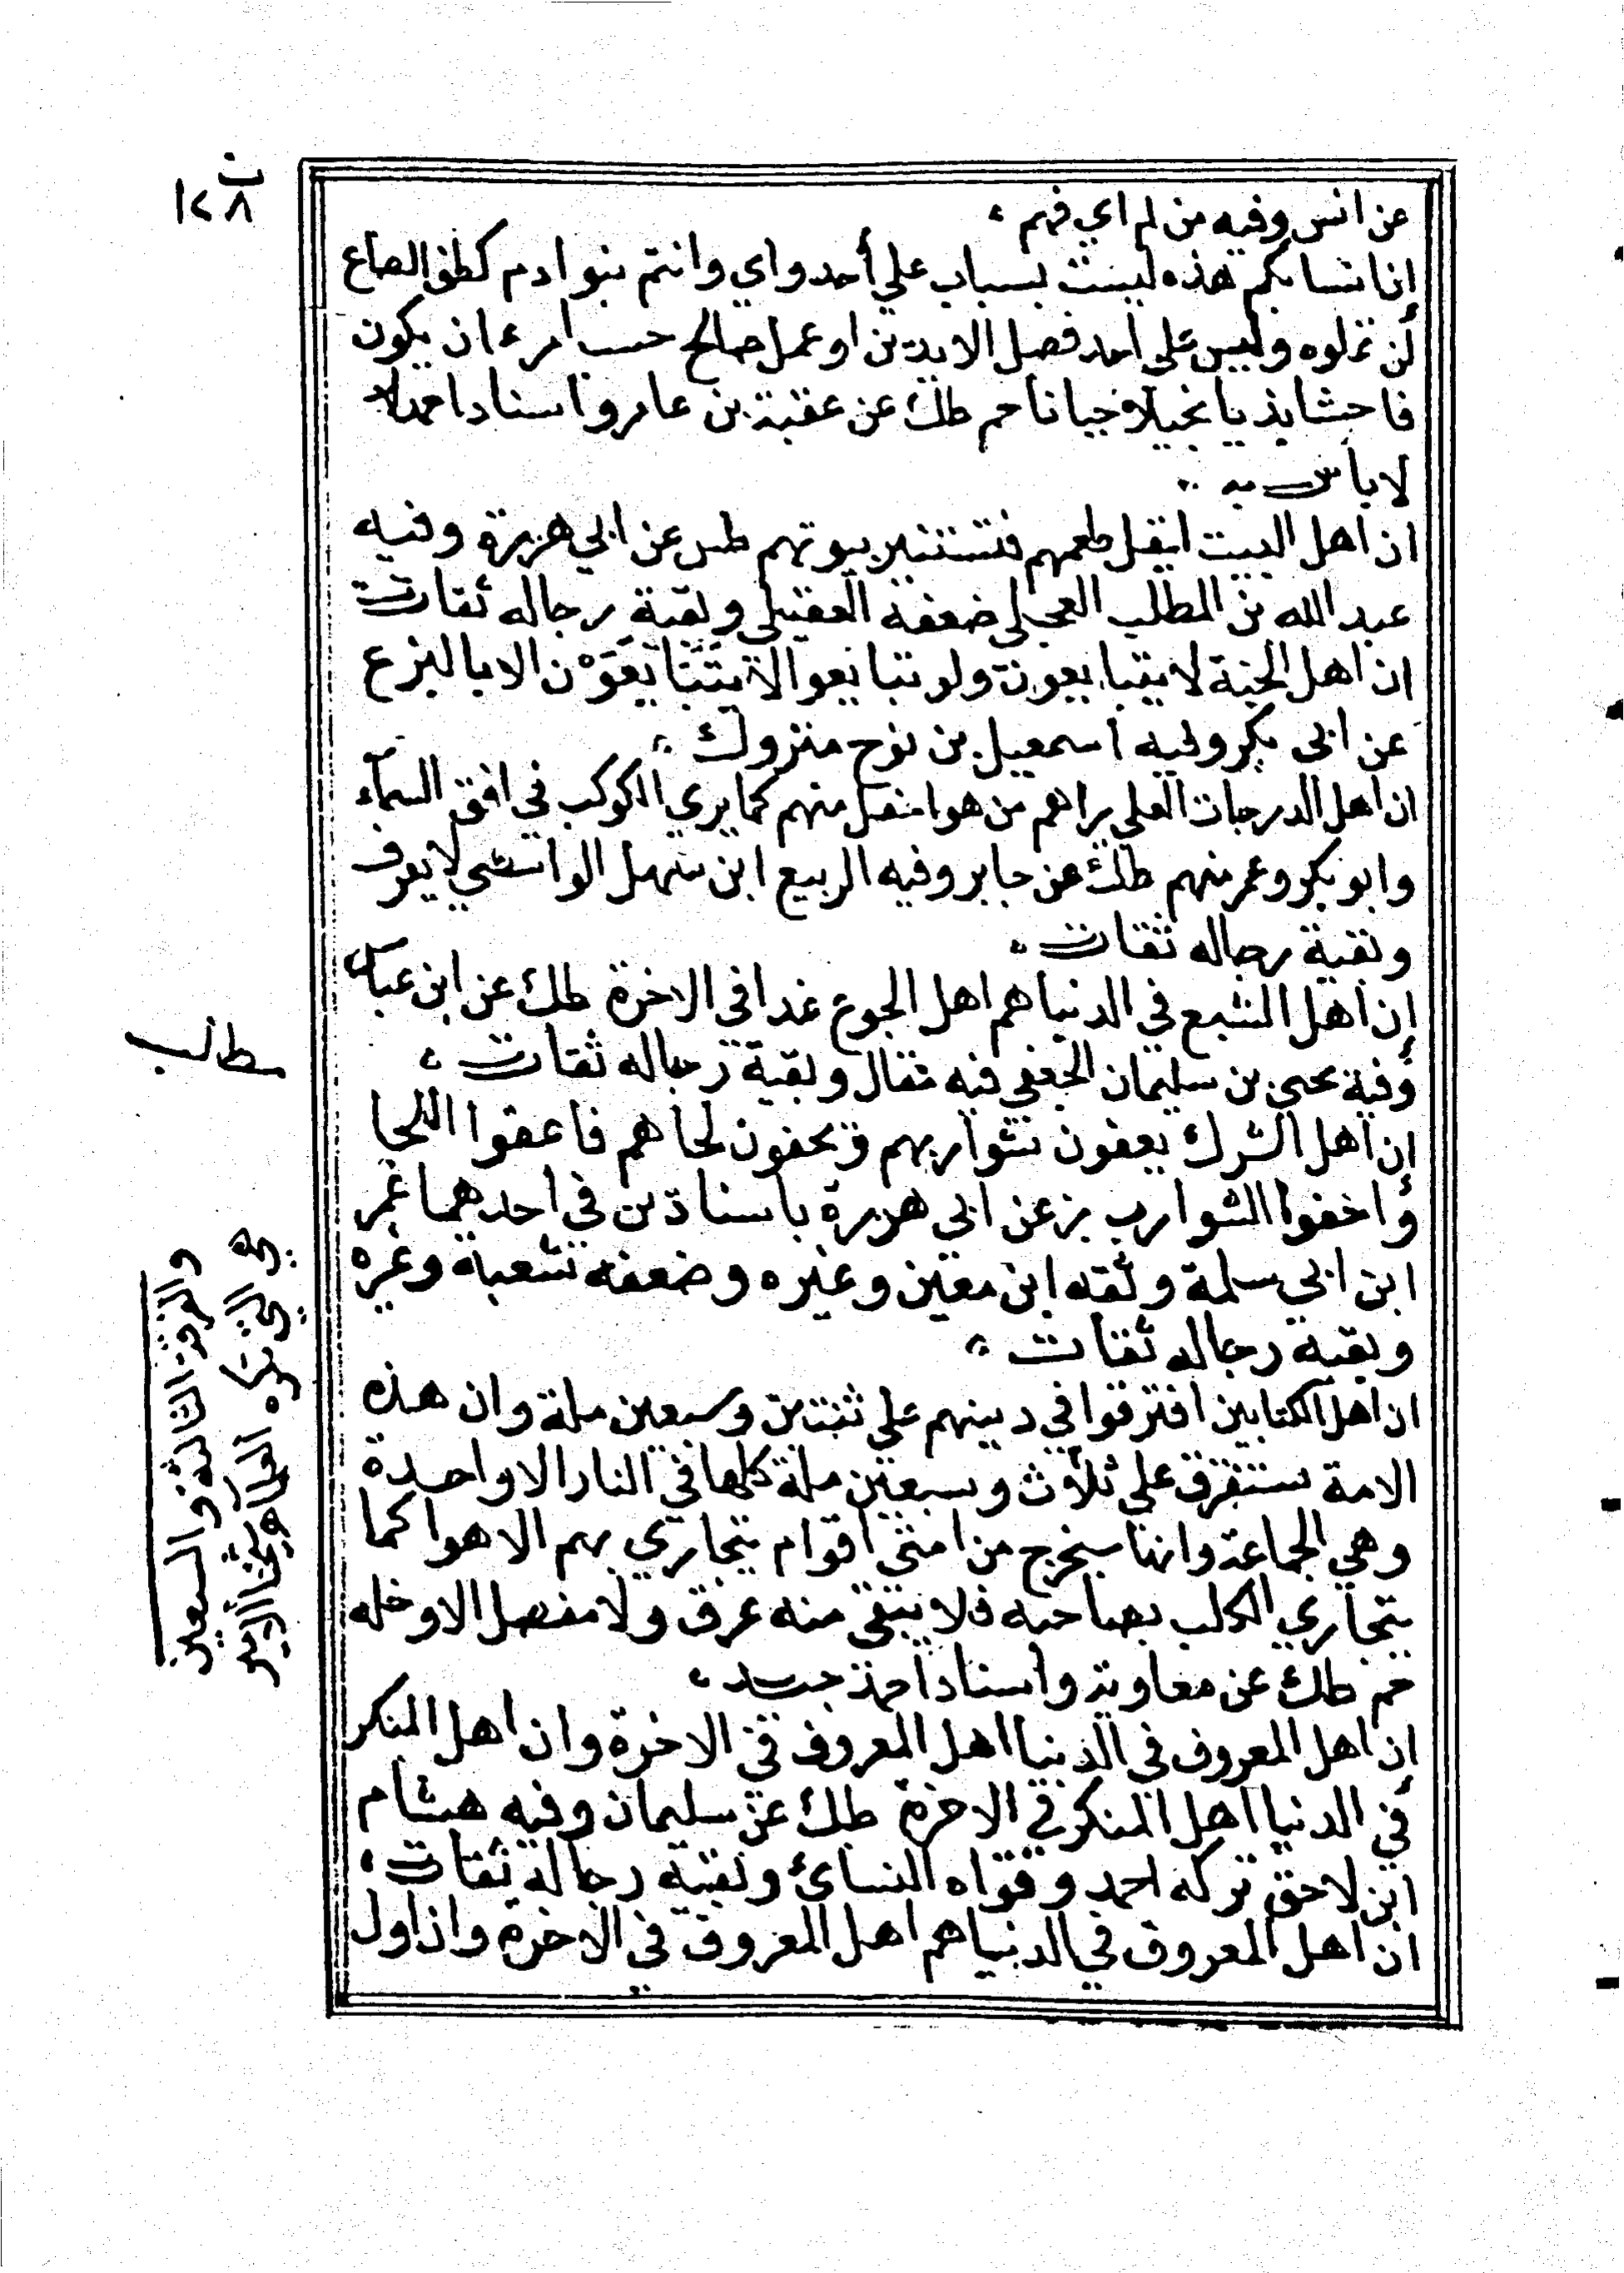 عن انس وفيه من لم اي فهم
إن انسابكم هذه ليست بسباب علي أحد واي وانتم بنوا دم كطف الصاع
لن تملوه وليس علي احد فصل الا بدين او عمل صالح حسب امرء ان يكون
فاحشا بذيا بخيلا جبانا حم طك عن عقبة بن عامر واسناد احمد
لا باس به
ان اهل البيت ايقل طعمهم فتستنير بيوتهم طس عن ابي هريرة وفيه
عبد الله بن المطلب العجلي ضعفه العقيلي وبقية رجاله ثقات
ان اهل الجنة لا يتبايعون ولو تبايعوا الا يتبايعون الا بالبز ع
عن ابي بكر وفيه اسمعيل بن نوح متروك
ان اهل الدرجات العلي يراهم من هو اسفل منهم كما يري الكوكب في افق السماء
وابو بكر وعمر منهم طك عن جابر وفيه الربيع ابن سهل الواسشي لا يعرف
وبقية رجاله ثقات
إن اهل الشبع في الدنيا هم اهل الجوع غدا في الاخرة طك عن ابن عباس
وفيه يحيي بن سليمان الجعفي فيه مقال وبقية رجاله ثقات
إن اهل الشرك يعفون شواربهم ويحفون لحاهم فاعفوا اللحا
واحفوا الشوارب بز عن ابي هريرة باسنادين في احدهما عمر
ابن ابي سلمة وثقه ابن معين وغيره وضعفه شعبة وغيره
وبقية رجاله ثقات
ان اهل الكتابين افترقوا في دينهم علي ثنتين وسبعين ملة وان هذه
الامة ستفترق علي ثلاث وسبعين ملة كلها في النار الا واحدة
وهي الجماعة وانها سيخرج من امتي اقوام يتجاري بهم الاهوا كما
يتجاري الكلب بصاحبه فلا يبقي منه عرق ولا مفصل الا دخله
حم طك عن معاوية واسناد احمد جيد
ان اهل المعروف في الدنيا اهل المعروف في الاخرة وان اهل المنكر
في الدنيا اهل المنكر في الاخرة طك عن سليمان وفيه هشام
ابن لاحق تركه احمد وقواه النسائ وبقية رجاله ثقات
ان اهل المعروف في الدنيا هم اهل المعروف في الاخرة وان اول
مطالب
والفرق الثالثة والسبعين